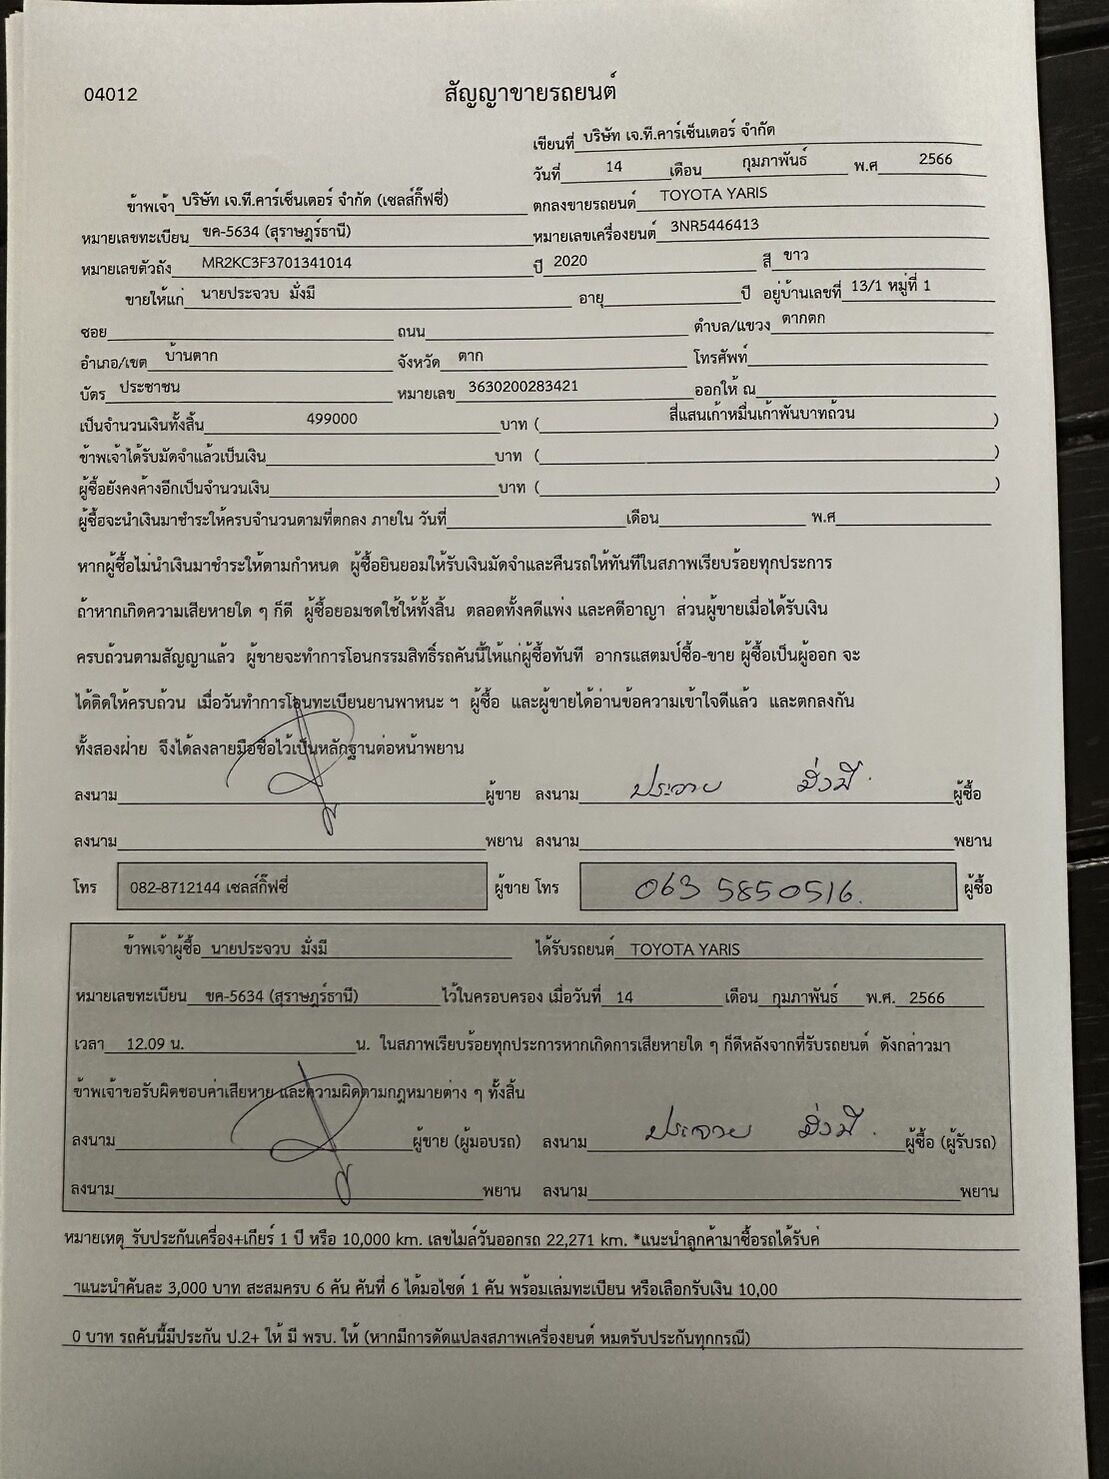 04012
สัญญาขายรถยนต์
เขียนที่ บริษัท เจ.ที.คาร์เซ็นเตอร์ จำกัด
วันที่ 14 เดือน กุมภาพันธ์ พ.ศ 2566
ข้าพเจ้า บริษัท เจ.ที.คาร์เซ็นเตอร์ จำกัด (เซลส์กิ๊ฟซี่) ตกลงขายรถยนต์ TOYOTA YARIS
หมายเลขทะเบียน ขค-5634 (สุราษฎร์ธานี) หมายเลขเครื่องยนต์ 3NR5446413
หมายเลขตัวถัง MR2KC3F3701341014 ปี 2020 สี ขาว
ขายให้แก่ นายประจวบ มั่งมี อายุ ปี อยู่บ้านเลขที่ 13/1 หมู่ที่ 1
ซอย ถนน ตำบล/แขวง ตากตก
อำเภอ/เขต บ้านตาก จังหวัด ตาก โทรศัพท์
บัตร ประชาชน หมายเลข 3630200283421 ออกให้ ณ
เป็นจำนวนเงินทั้งสิ้น 499000 บาท ( สี่แสนเก้าหมื่นเก้าพันบาทถ้วน )
ข้าพเจ้าได้รับมัดจำแล้วเป็นเงิน บาท ( )
ผู้ซื้อยังคงค้างอีกเป็นจำนวนเงิน บาท ( )
ผู้ซื้อจะนำเงินมาชำระให้ครบจำนวนตามที่ตกลง ภายใน วันที่ เดือน พ.ศ
หากผู้ซื้อไม่นำเงินมาชำระให้ตามกำหนด ผู้ซื้อยินยอมให้รับเงินมัดจำและคืนรถให้ทันทีในสภาพเรียบร้อยทุกประการ
ถ้าหากเกิดความเสียหายใด ๆ ก็ดี ผู้ซื้อยอมชดใช้ให้ทั้งสิ้น ตลอดทั้งคดีแพ่ง และคดีอาญา ส่วนผู้ขายเมื่อได้รับเงิน
ครบถ้วนตามสัญญาแล้ว ผู้ขายจะทำการโอนกรรมสิทธิ์รถคันนี้ให้แก่ผู้ซื้อทันที อากรแสตมป์ซื้อ-ขาย ผู้ซื้อเป็นผู้ออก จะ
ได้ติดให้ครบถ้วน เมื่อวันทำการโอนทะเบียนยานพาหนะ ฯ ผู้ซื้อ และผู้ขายได้อ่านข้อความเข้าใจดีแล้ว และตกลงกัน
ทั้งสองฝ่าย จึงได้ลงลายมือชื่อไว้เป็นหลักฐานต่อหน้าพยาน
ลงนาม ผู้ขาย ลงนาม ประจวบ มั่งมี ผู้ซื้อ
ลงนาม พยาน ลงนาม พยาน
โทร 082-8712144 เซลส์กิ๊ฟซี่ ผู้ขาย โทร 063 5850516 ผู้ซื้อ
ข้าพเจ้าผู้ซื้อ นายประจวบ มั่งมี ได้รับรถยนต์ TOYOTA YARIS
หมายเลขทะเบียน ขค-5634 (สุราษฎร์ธานี) ไว้ในครอบครอง เมื่อวันที่ 14 เดือน กุมภาพันธ์ พ.ศ. 2566
เวลา 12.09 น. น. ในสภาพเรียบร้อยทุกประการหากเกิดการเสียหายใด ๆ ก็ดีหลังจากที่รับรถยนต์ ดังกล่าวมา
ข้าพเจ้าขอรับผิดชอบค่าเสียหาย และความผิดตามกฎหมายต่าง ๆ ทั้งสิ้น
ลงนาม ผู้ขาย (ผู้มอบรถ) ลงนาม ประจวบ มั่งมี ผู้ซื้อ (ผู้รับรถ)
ลงนาม พยาน ลงนาม พยาน
หมายเหตุ รับประกันเครื่อง+เกียร์ 1 ปี หรือ 10,000 km. เลขไมล์วันออกรถ 22,271 km. *แนะนำลูกค้ามาซื้อรถได้รับค่
าแนะนำคันละ 3,000 บาท สะสมครบ 6 คัน คันที่ 6 ได้มอไซด์ 1 คัน พร้อมเล่มทะเบียน หรือเลือกรับเงิน 10,00
0 บาท รถคันนี้มีประกัน ป.2+ ให้ มี พรบ. ให้ (หากมีการดัดแปลงสภาพเครื่องยนต์ หมดรับประกันทุกกรณี)